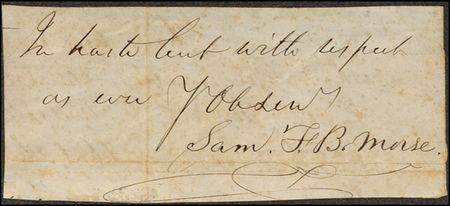 In haste but with respect
as ever Y Ob Serv
Sam. F. B. Morse.